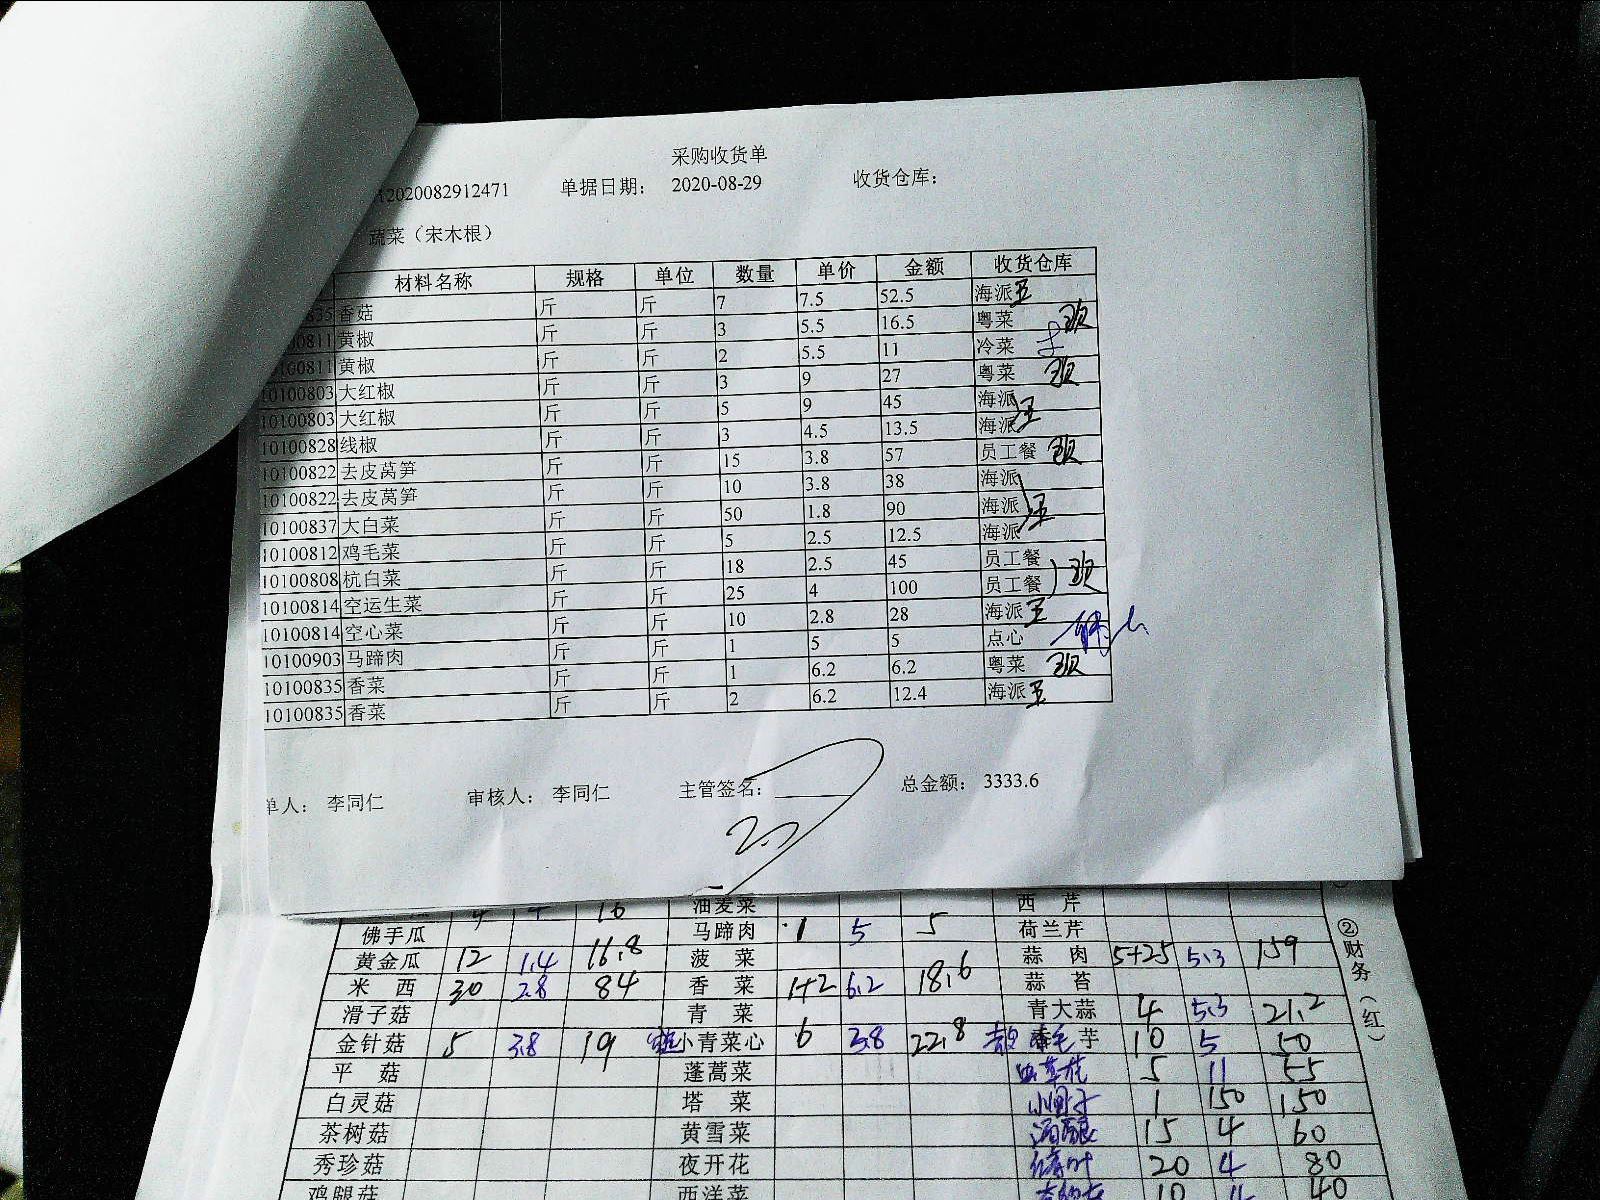 采购收货单
2020082912471 单据日期： 2020-08-29 收货仓库：
蔬菜（宋木根）
材料名称 规格 单位 数量 单价 金额 收货仓库
835 香菇 斤 斤 7 7.5 52.5 海派 王
00811 黄椒 斤 斤 3 5.5 16.5 粤菜
10100811 黄椒 斤 斤 2 5.5 11 冷菜
10100803 大红椒 斤 斤 3 9 27 粤菜
10100803 大红椒 斤 斤 5 9 45 海派
10100828 线椒 斤 斤 3 4.5 13.5 海派 王
10100822 去皮莴笋 斤 斤 15 3.8 57 员工餐
10100822 去皮莴笋 斤 斤 10 3.8 38 海派
10100837 大白菜 斤 斤 50 1.8 90 海派 王
10100812 鸡毛菜 斤 斤 5 2.5 12.5 海派
10100808 杭白菜 斤 斤 18 2.5 45 员工餐
10100814 空运生菜 斤 斤 25 4 100 员工餐
10100814 空心菜 斤 斤 10 2.8 28 海派 王
10100903 马蹄肉 斤 斤 1 5 5 点心
10100835 香菜 斤 斤 1 6.2 6.2 粤菜
10100835 香菜 斤 斤 2 6.2 12.4 海派 王
单人： 李同仁 审核人： 李同仁 主管签名： 总金额： 3333.6
16 油麦菜 西 芹
佛手瓜 马蹄肉 1 5 5 荷兰芹
黄金瓜 12 1.4 16.8 菠 菜 蒜 肉 5+25 5.3 159
米 西 30 2.8 84 香 菜 1+2 6.2 18.6 蒜 苔
滑子菇 青 菜 青大蒜 4 5.3 21.2
金针菇 5 3.8 19 小青菜心 6 3.8 22.8 毛 芋 10 5 50
平 菇 蓬蒿菜 5 11 55
白灵菇 塔 菜 1 150 150
茶树菇 黄雪菜 酒酿 15 4 60
秀珍菇 夜开花 20 4 80
鸡腿菇 西洋菜 10 4 40
②财务（红）